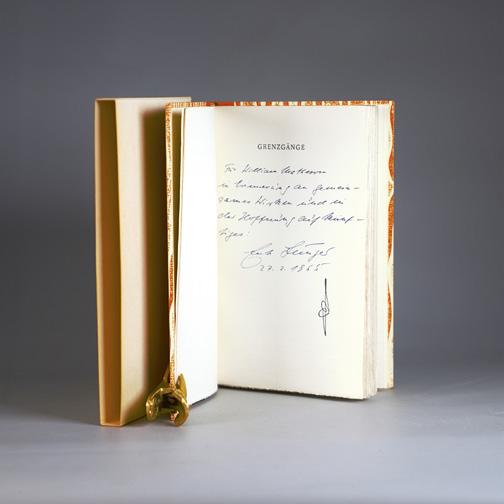 GRENZGÄNGE
Für William
in Erinnerung an gemein-
sames Wirken und in
der Hoffnung auf künf-
tiges:
Ernst Jünger
27. 2. 1965